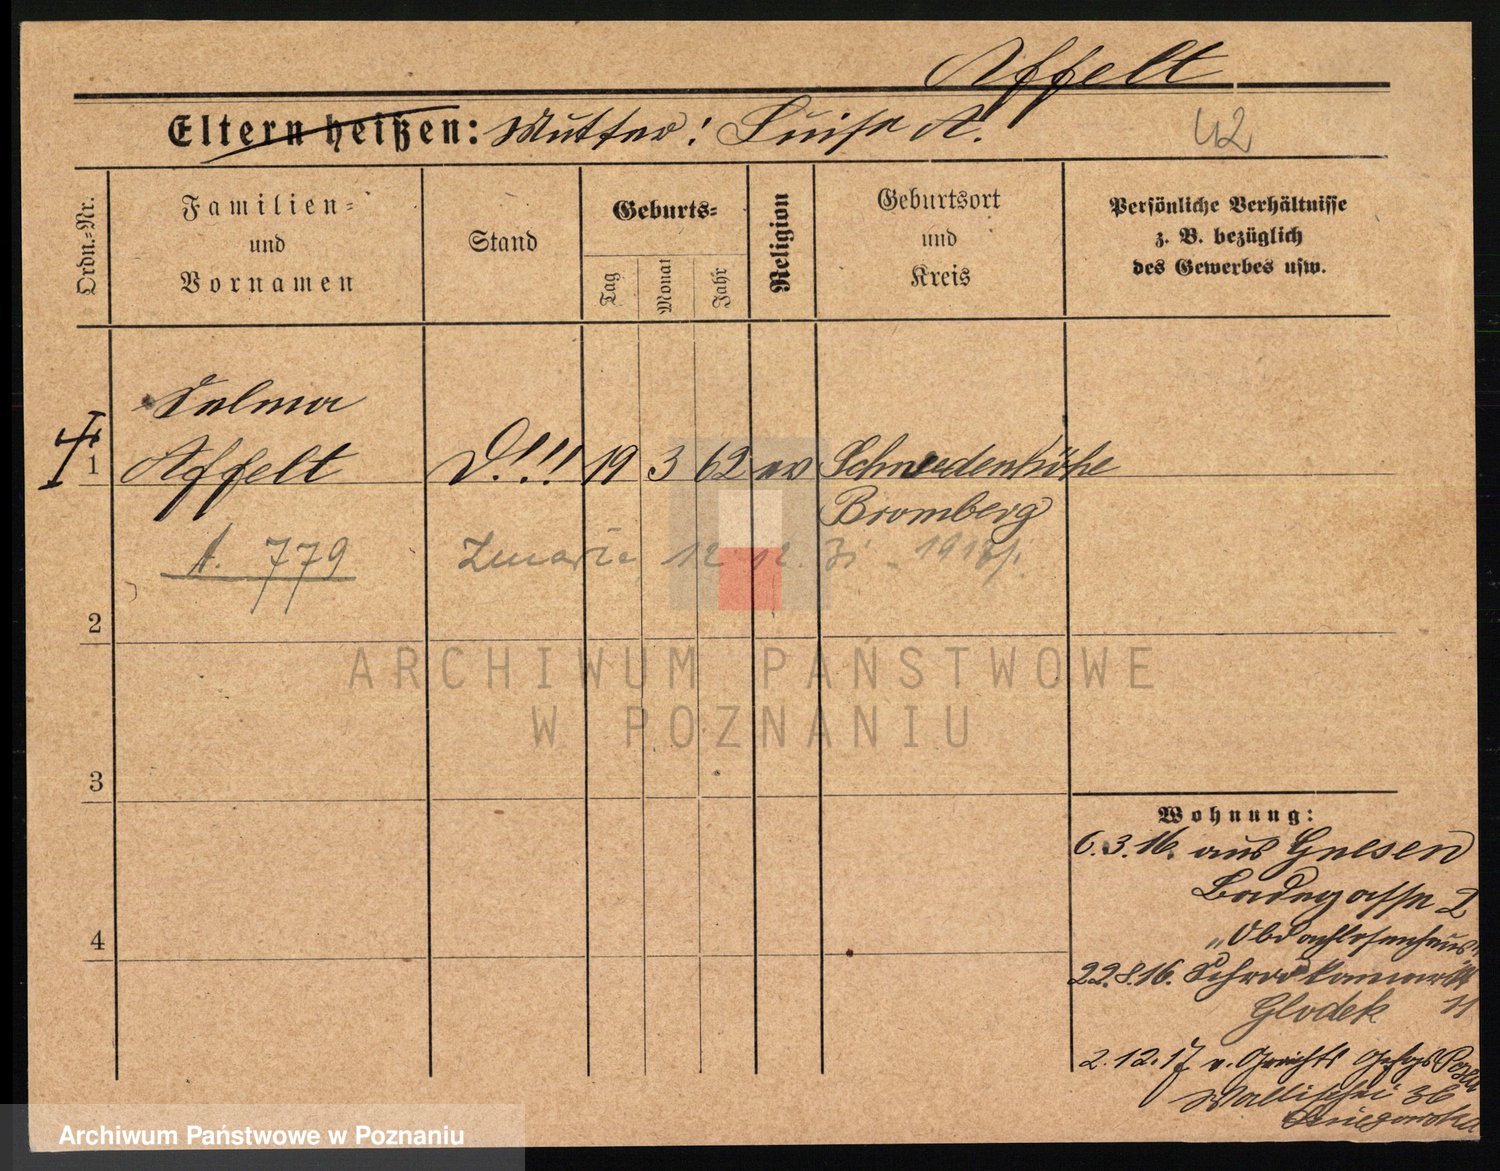 Affelt
Eltern heißen: Mutter: Luise A.
42
Ordn.=Nr.
Familien=
und
Vornamen
Stand
Geburts=
Tag
Monat
Jahr
Religion
Geburtsort
und
Kreis
Persönliche Verhältnisse
z. B. bezüglich
des Gewerbes usw.
Selma
1 Affelt D.!!! 19 3 62 ev Schwedenhöhe
Bromberg
A. 779
12 12.
2
ARCHIWUM PAŃSTWOWE
W POZNANIU
3
Wohnung:
6.3.16. aus Gnesen
Badegasse 2
„Obdachlosenhaus"
4
22.8.16.
Glodek 11
2.12.17 v. Gerichts Gefgs Posen
Wallischei 36
Archiwum Państwowe w Poznaniu